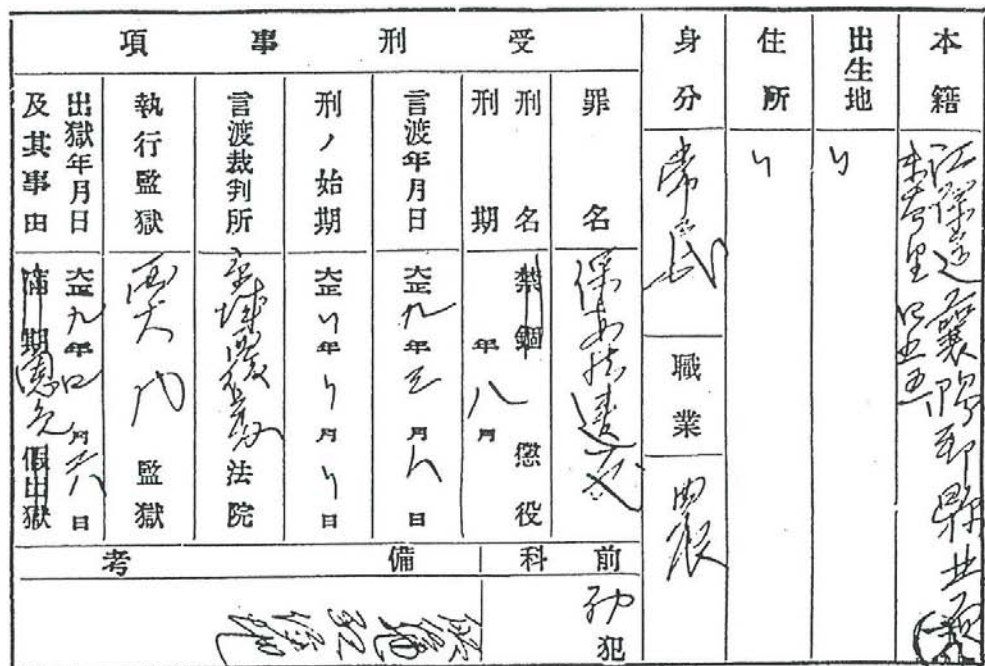 本籍
江原道襄陽郡縣北面
出生地
〃
住所
〃
身分
常民
職業
農
受刑事項
罪名
保安法違反
刑名
禁錮 懲役
刑期
年 八月
言渡年月日
大正九年三月 日
刑ノ始期
大正〃年〃月〃日
言渡裁判所
京城覆審法院
執行監獄
西大門監獄
出獄年月日
及其事由
大正九年四月廿八日
滿期 恩免 假出獄
前科
初犯
備考